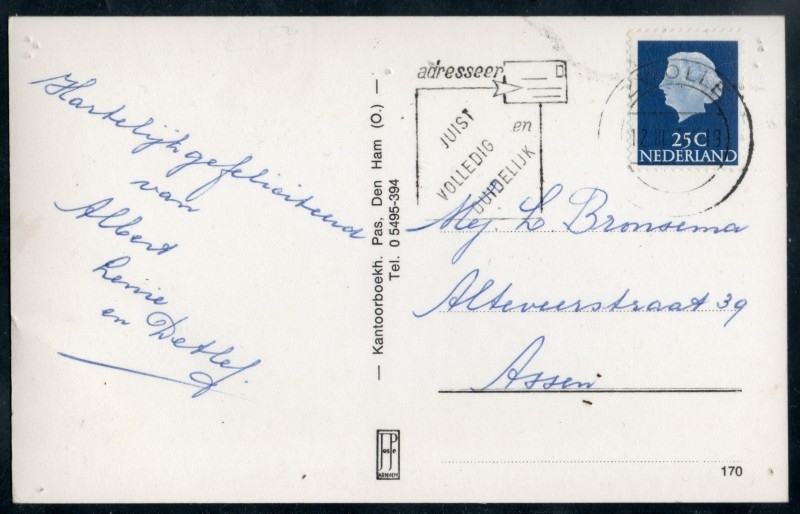 Hartelijk gefeliciteerd
van
Albert
Lenie
en Detlef.
— Kantoorboekh. Pas, Den Ham (O.) —
Tel. 0 5495-394
JosPé
ARNHEM
adresseer
JUIST
VOLLEDIG
en
DUIDELIJK
ZWOLLE
12.III
25C
NEDERLAND
Mej. L. Bronsema
Alteveerstraat 39
Assen
170